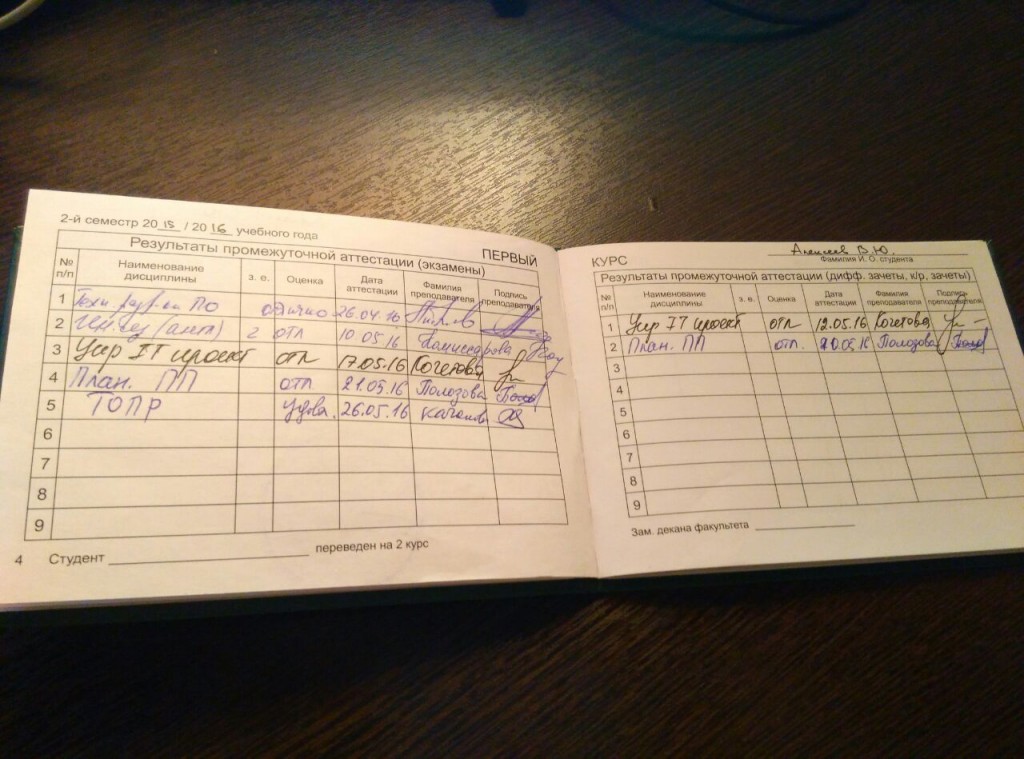 2-й семестр 20 15 / 20 16 учебного года
Результаты промежуточной аттестации (экзамены)
ПЕРВЫЙ
№ п/п Наименование дисциплины з. е. Оценка Дата аттестации Фамилия преподавателя Подпись преподавателя
1 ПО отлично 26.04.16
2 2 отл 10.05.16
3 Упр IT проект отл 17.05.16 Кочетова
4 План. ПП отл 21.05.16 Полозова
5 ТОПР удов. 26.05.16
6
7
8
9
4 Студент переведен на 2 курс
КУРС
Алексеев В.Ю.
Фамилия И. О. студента
Результаты промежуточной аттестации (дифф. зачеты, к/р, зачеты)
№ п/п Наименование дисциплины з. е. Оценка Дата аттестации Фамилия преподавателя Подпись преподавателя
1 Упр IT проект отл 12.05.16 Кочетова
2 План. ПП отл. 20.05.16 Полозова
3
4
5
6
7
8
9
Зам. декана факультета